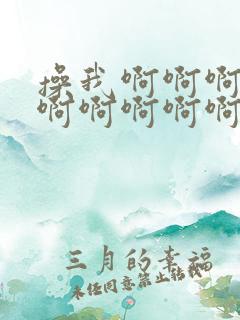 操我 啊啊啊
啊啊啊啊啊
三月的幸福
未经同意禁止转载